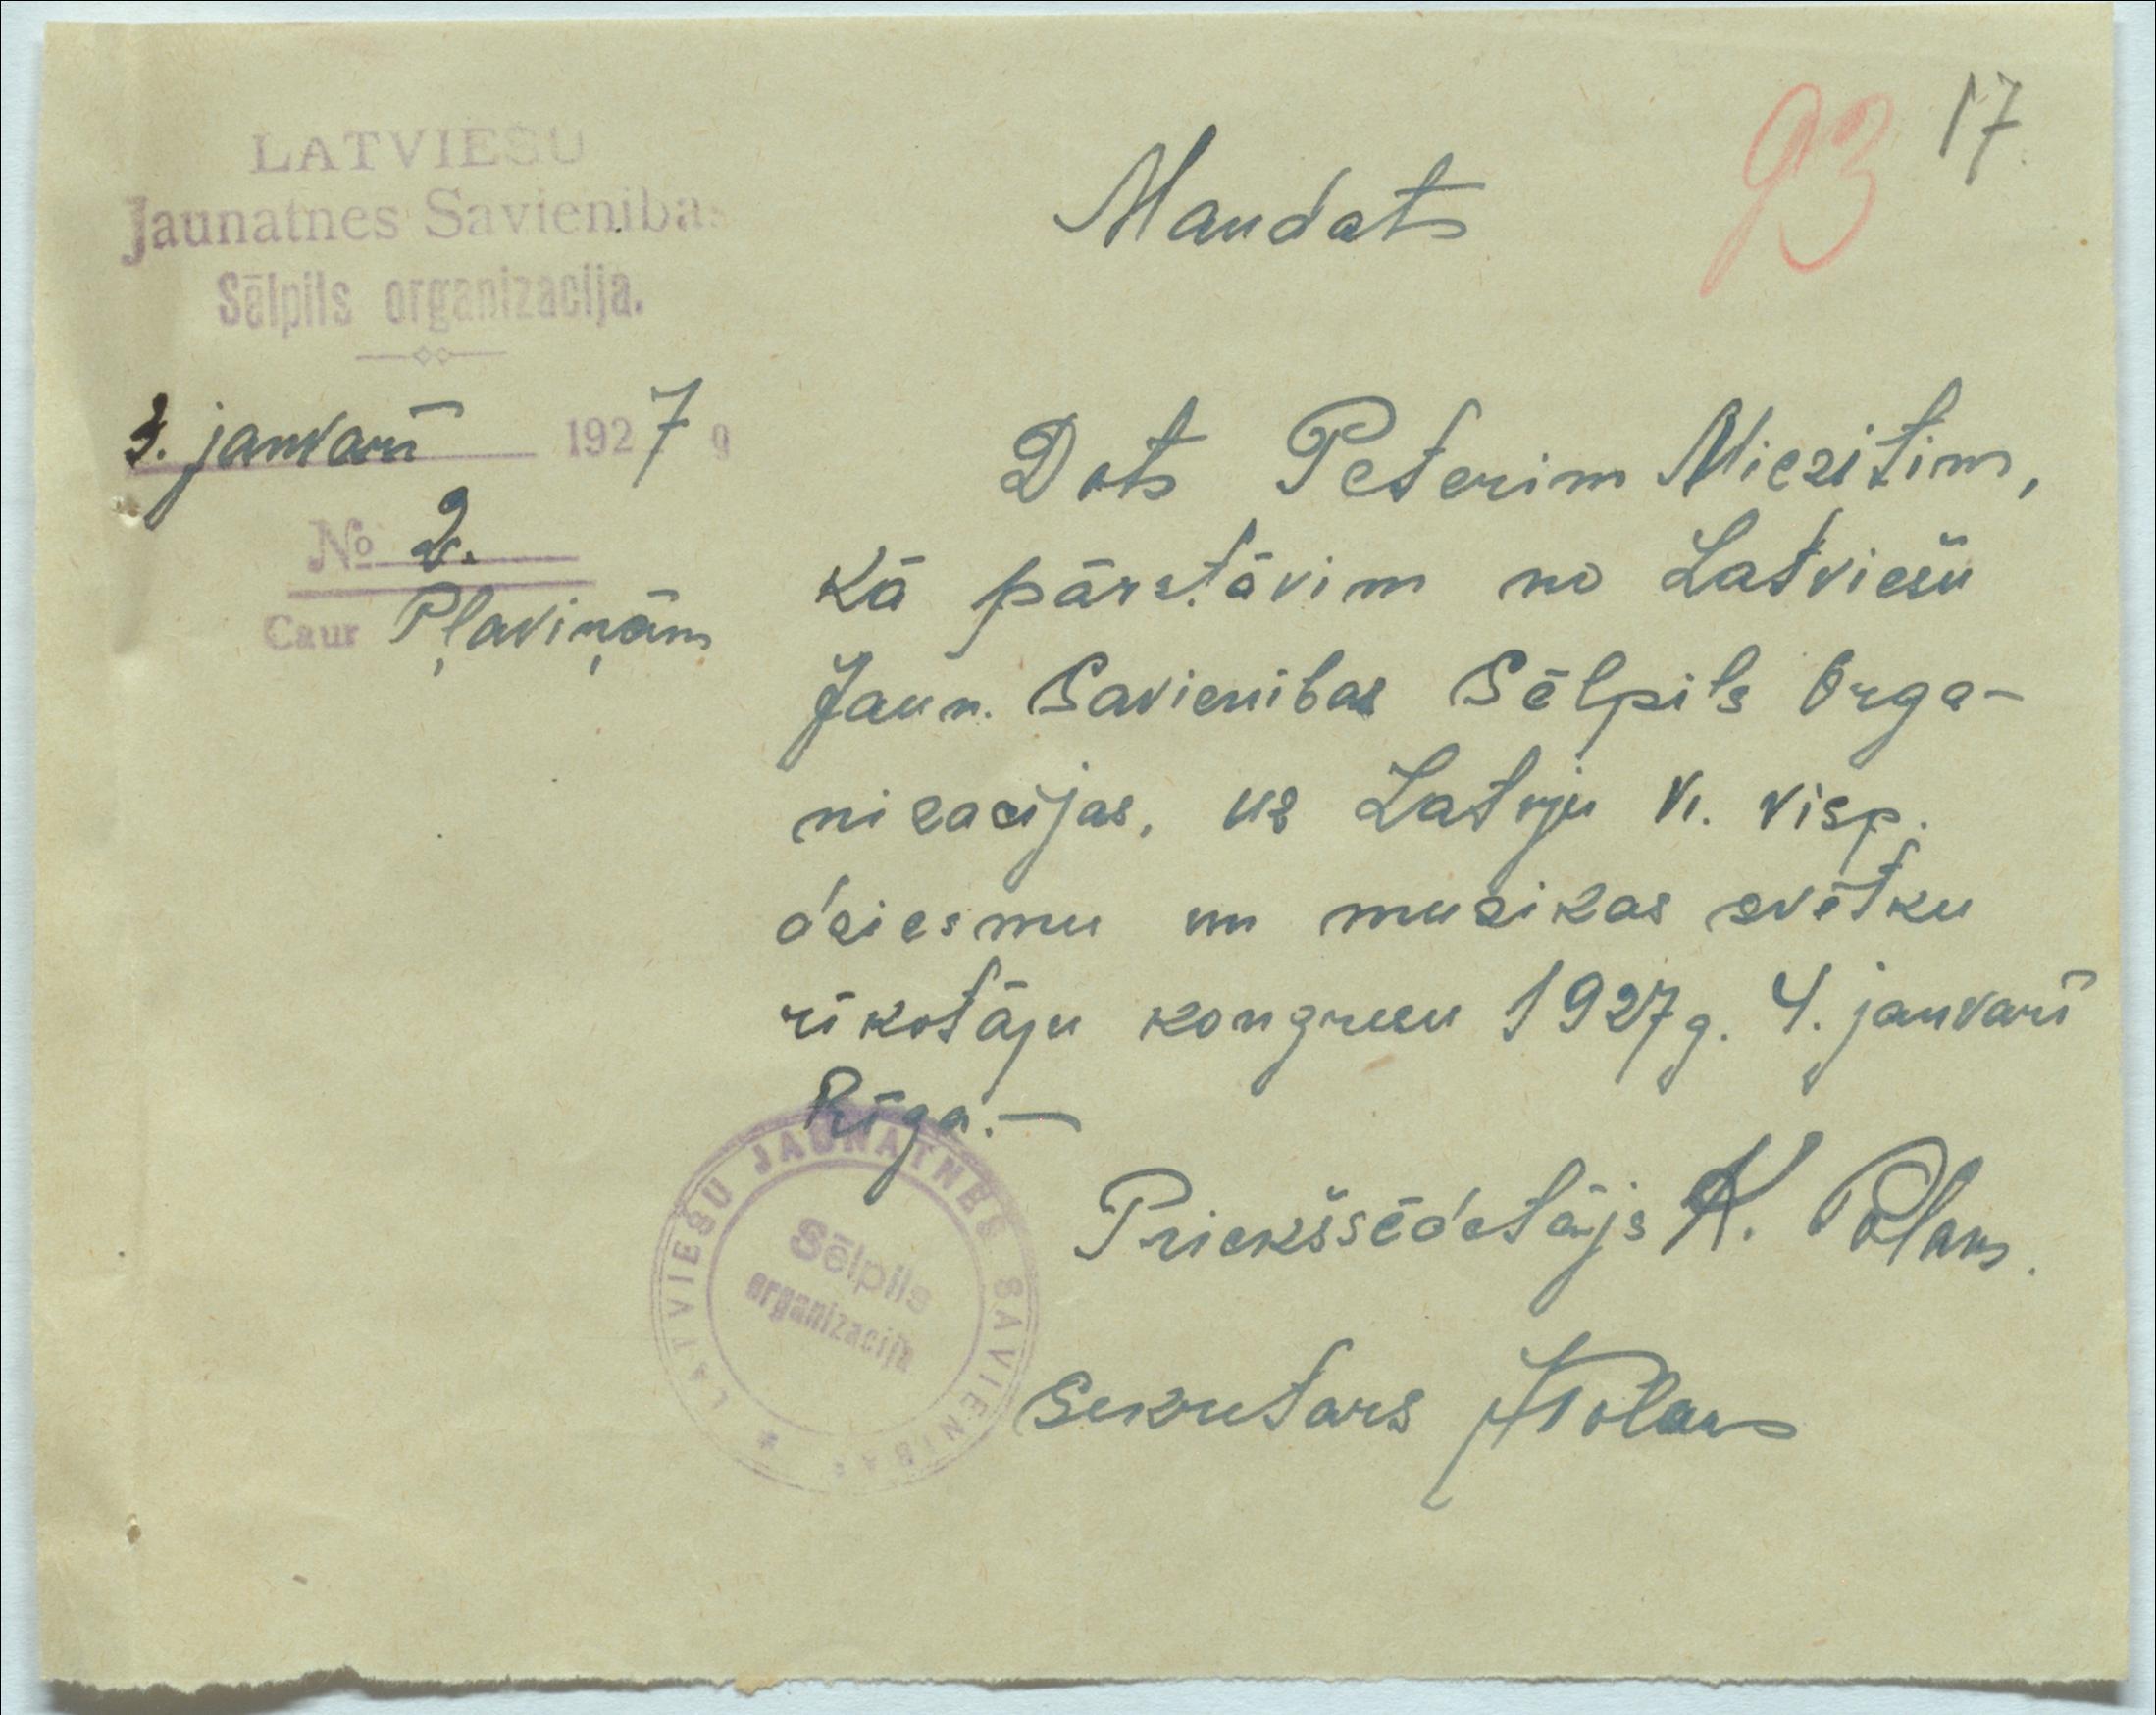 93 17.
LATVIEŠU
Jaunatnes Savienibas
Sēlpils organizacija.
3. janvarī 1927 g
№ 2.
Caur Pļaviņām
Mandats
Dots Peterim Miezitim,
kā pārstāvim no Latviešu
Jaun. Savienibas Sēlpils Orga-
nizacijas, uz Latvju VI. visp.
dziesmu un muzikas svētku
rīkotāju kongresu 1927 g. 4. janvarī
Rīga.—
Priekšsēdetājs K. Polans.
Sekretars Polans
LATVIEŠU JAUNATNES SAVIENIBAS
Sēlpils
organizacija